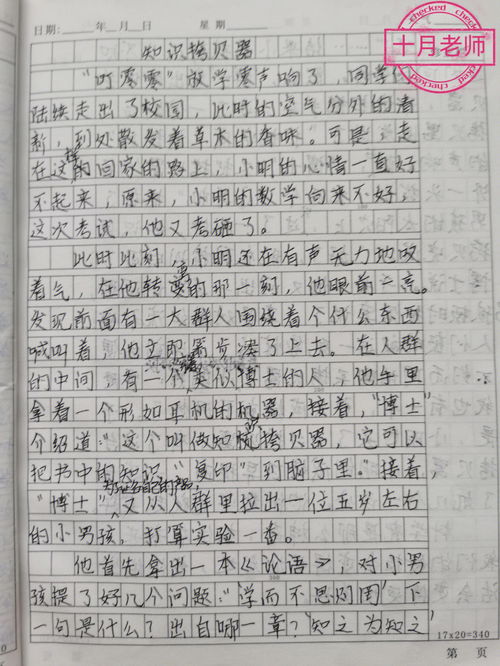 日期: 年 月 日 星期
checked
十月老师
checked
知识拷贝器
“叮零零”放学零声响了，同学
陆续走出了校园，此时的空气分外的清
新，到处散发着草木的香味。可是，走
在这样的回家的路上，小明的心情一直好
不起来，原来，小明的数学向来不好，
这次考试，他又考砸了。
此时此刻，小明还在有声无力地叹
着气，在他转弯的那一刻，他眼前一亮。
发现前面有一大群人围绕着个什么东西
喊叫着，他立即箭步凑了上去。在人群
的中间，有一个类似博士的人，他手里
拿着一个形如耳机的机器，接着，“博士”
介绍道：“这个叫做知识拷贝器，它可以
把书中的知识“复印”到脑子里。接着，
“博士”又从人群里拉出一位五岁左右
的小男孩，打算实验一番。
他首先拿出一本《论语》，对小男
孩提了好几个问题：“学而不思则罔”下
一句是什么？出自哪一章？“知之为知之
17×20=340
第 页